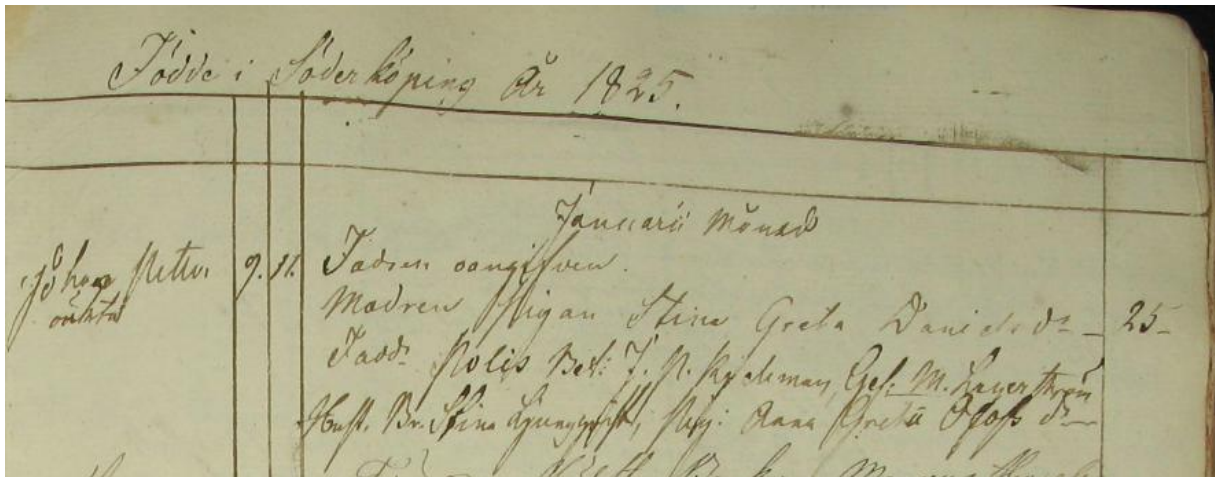 Födde i Söderköping År 1825.
Januarii Månad
Johan Petter 9. 11. Fadren oangifven.
oäkta Modren Pigan Stina Greta Danielsdr 25
Fadd: Polis Bet: J. P. Ryckman, Ges: M. Lagerström
Hust. Br. Stina Ljungqvist, Pig: Anna Greta Olofs dr